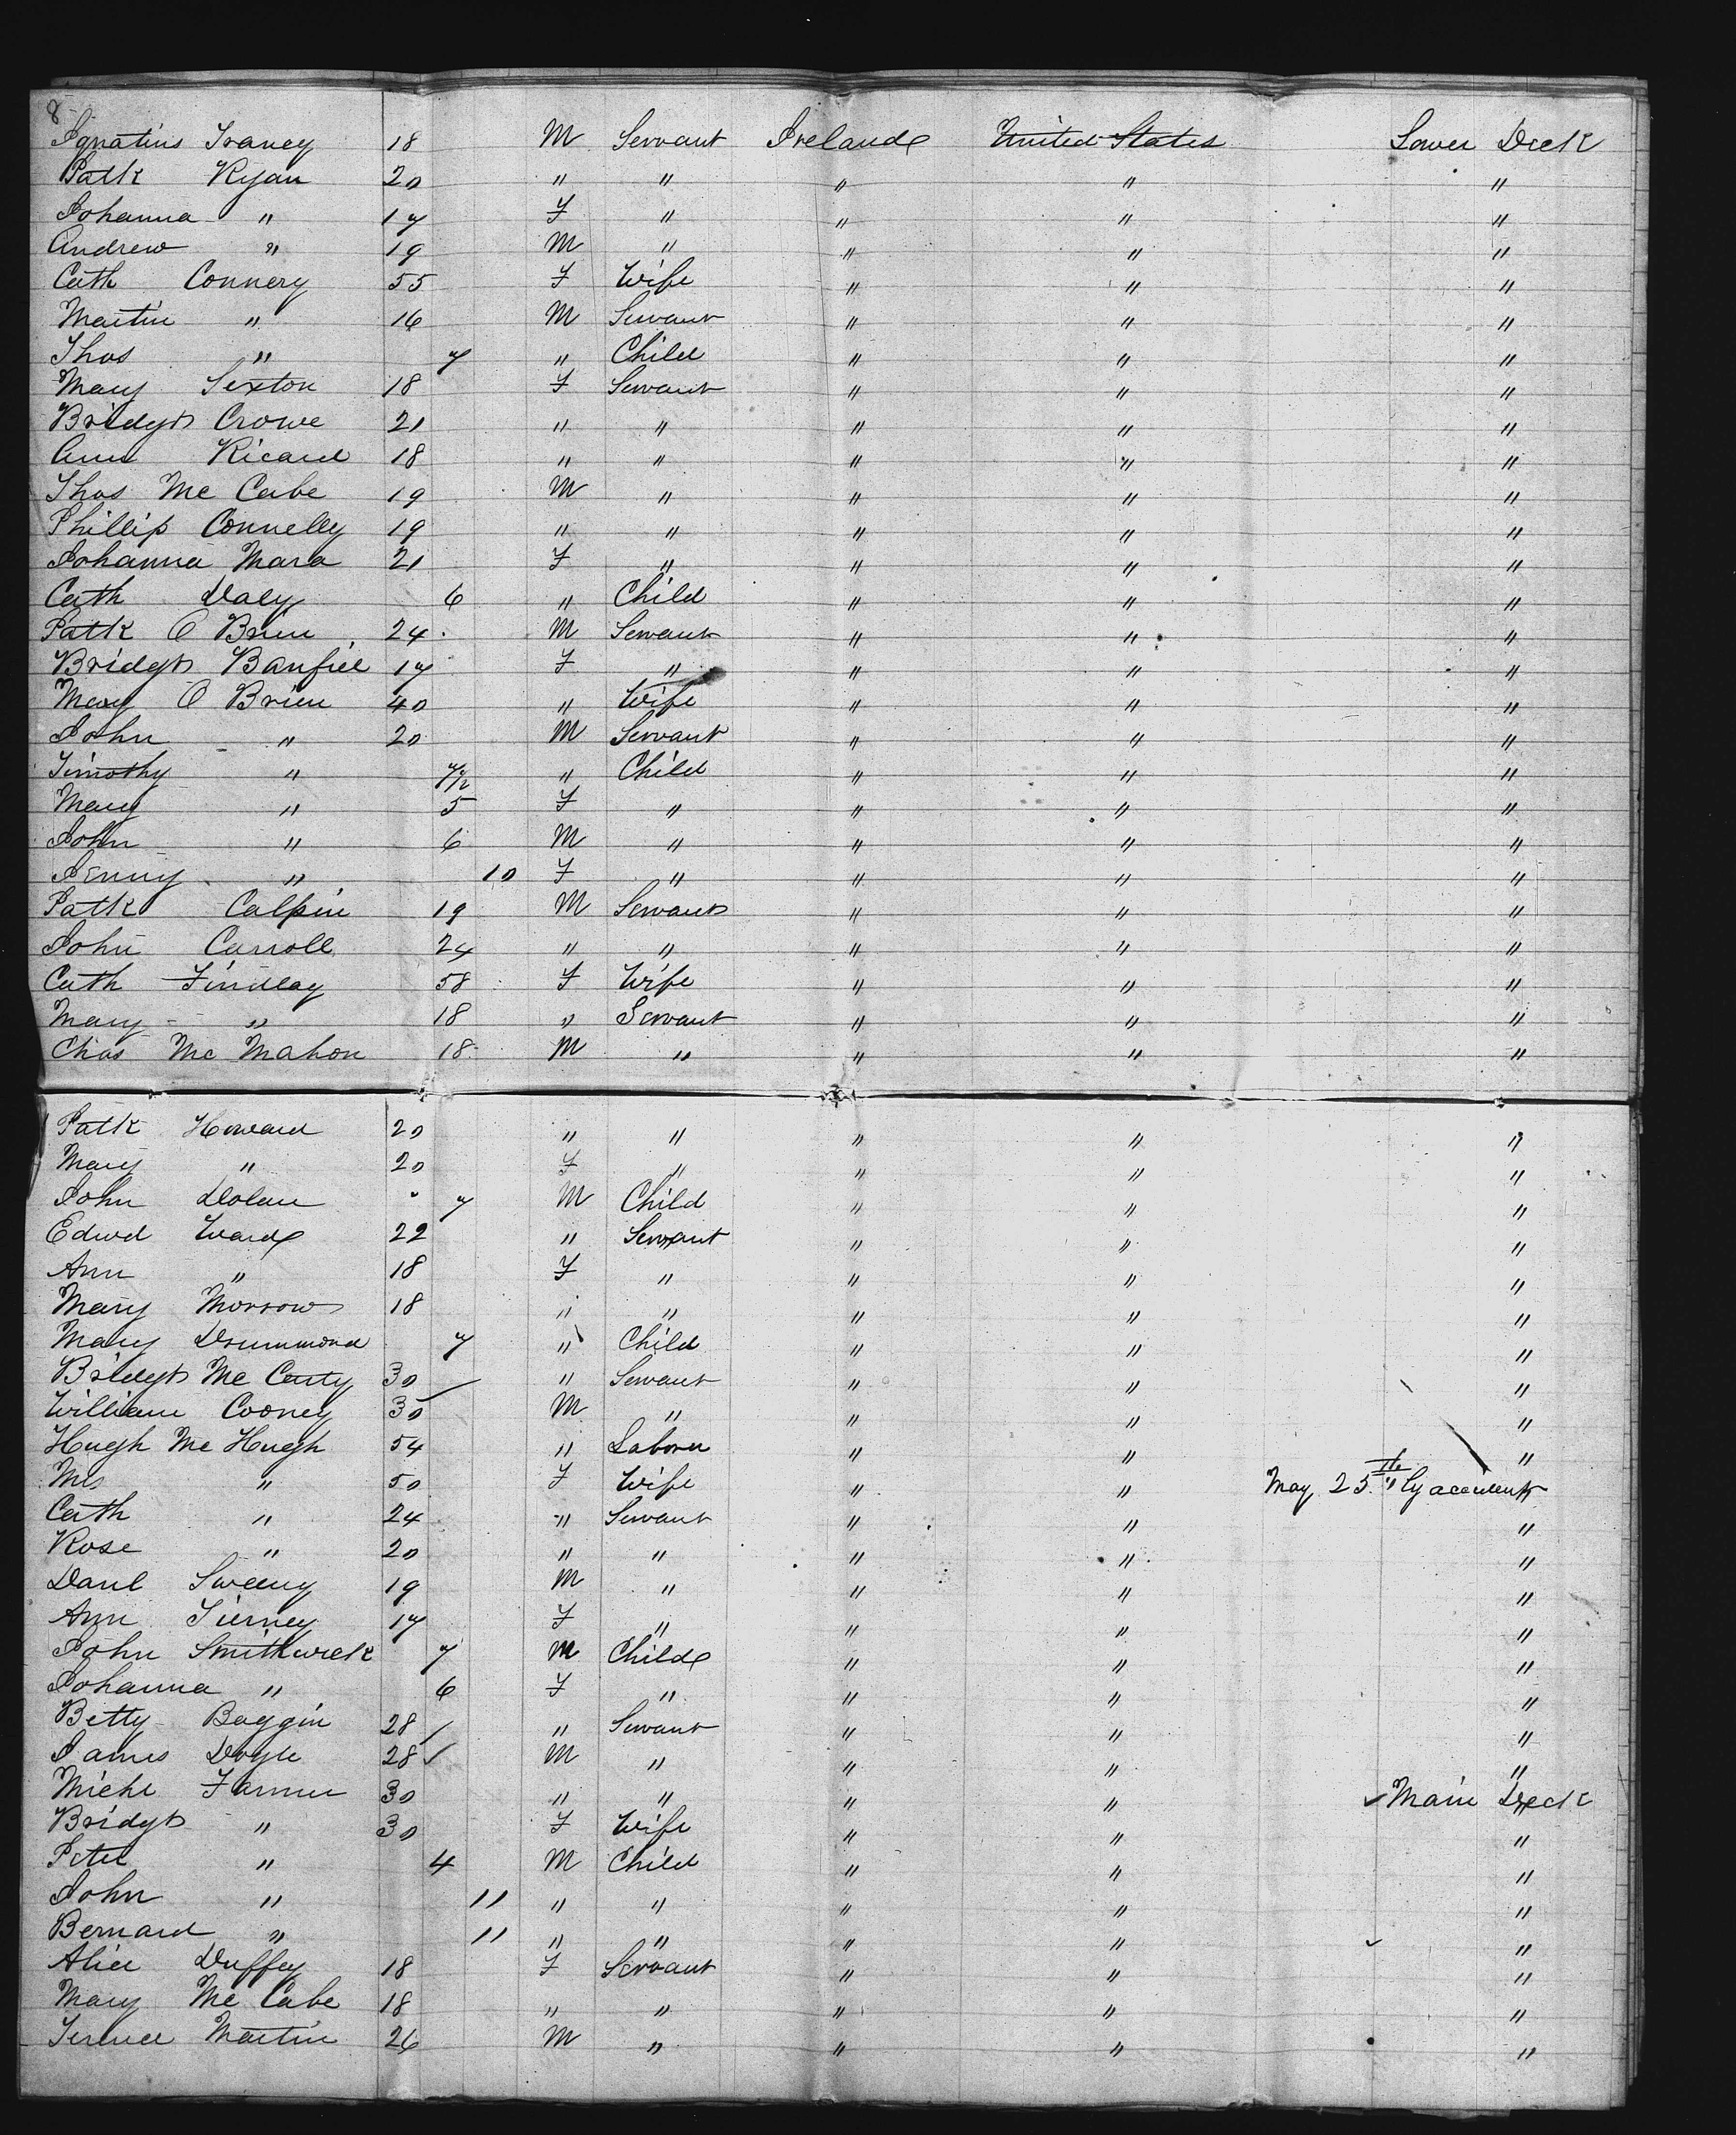 8
Ignatius Traney 18 M Servant Ireland United States Lower Deck
Patk Ryan 20 " " " " "
Johanna " 17 F " " " "
Andrew " 19 M " " " "
Cath Connery 55 F Wife " " "
Martin " 16 M Servant " " "
Thos " 7 " Child " " "
Mary Sexton 18 F Servant " " "
Bridgt Crowe 21 " " " " "
Ann Ricard 18 " " " " "
Thos Mc Cabe 19 M " " " "
Phillip Connelly 19 " " " " "
Johanna Mara 21 F " " " "
Cath Daly 6 " Child " " "
Patk O Brien 24 M Servant " " "
Bridgt Banfiel 17 F " " " "
Mary O Brien 40 " Wife " " "
John " 20 M Servant " " "
Timothy " 7/12 " Child " " "
Mary " 5 F " " " "
John " 6 M " " " "
Jenny " 10 F " " " "
Patk Calpin 19 M Servant " " "
John Carroll 24 " " " " "
Cath Findlay 58 F Wife " " "
Mary " 18 " Servant " " "
Chas Mc Mahon 18 M " " " "
Patk Howard 20 " " " " "
Mary " 20 F " " " "
John Dolan 7 M Child " " "
Edwd Ward 22 " Servant " " "
Ann " 18 F " " " "
Mary Morrow 18 " " " " "
Mary Drummond 7 " Child " " "
Bridgt Mc Carty 30 " Servant " " "
William Cooney 30 M " " " "
Hugh Mc Hugh 54 " Laborer " " "
Mrs " 50 F Wife " " May 25th " by accident "
Cath " 24 " Servant " " "
Rose " 20 " " " " "
Danl Sweeny 19 M " " " "
Ann Tierney 17 F " " " "
John Smithwick 7 M Child " " "
Johanna " 6 F " " " "
Betty Baggin 28 " Servant " " "
James Doyle 28 M " " " "
Michl Farmer 30 " " " " Main Deck
Bridgt " 30 F Wife " " "
Peter " 4 M Child " " "
John " 11 " " " " "
Bernard " 11 " " " " "
Alice Duffey 18 F Servant " " "
Mary Mc Cabe 18 " " " " "
Terence Martin 26 M " " " "